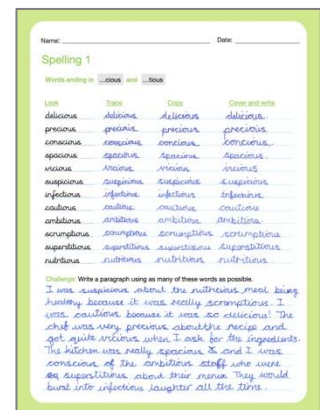 Name: Date:
Spelling 1
Words ending in ...cious and ...tious
Look Trace Copy Cover and write
delicious delicious delicious delicious.
precious precious precious precious
conscious conscious concious concious.
spacious spacious spacious spacious.
vicious vicious vicious vicious
suspicious suspicious suspicious suspicious
infectious infectious infectious infectious.
cautious cautious cautious cautious
ambitious ambitious ambitious ambitious.
scrumptious scrumptious scrumptious scrumptious
superstitious superstitious superstitious superstitious
nutritious nutritious nutritious nutritious.
Challenge Write a paragraph using as many of these words as possible.
I was suspicious about the nutricious meal being
healthy because it was really scromptious. I
was cautious because it was so delicious! The
chef was very precious about the recipe and
got quite vicious when I ask for the ingredients.
The kitchen was really spacious & and I was
conscious of the ambitious staff who were
superstitious about their menus They would
burst into infectious laughter all the time.